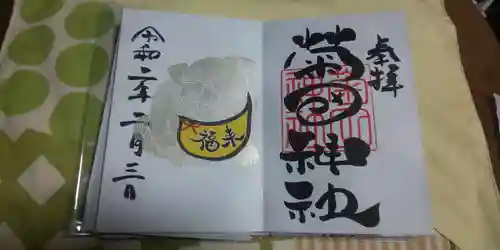 奉拝
菊田神社
来福
令和二年二月三日